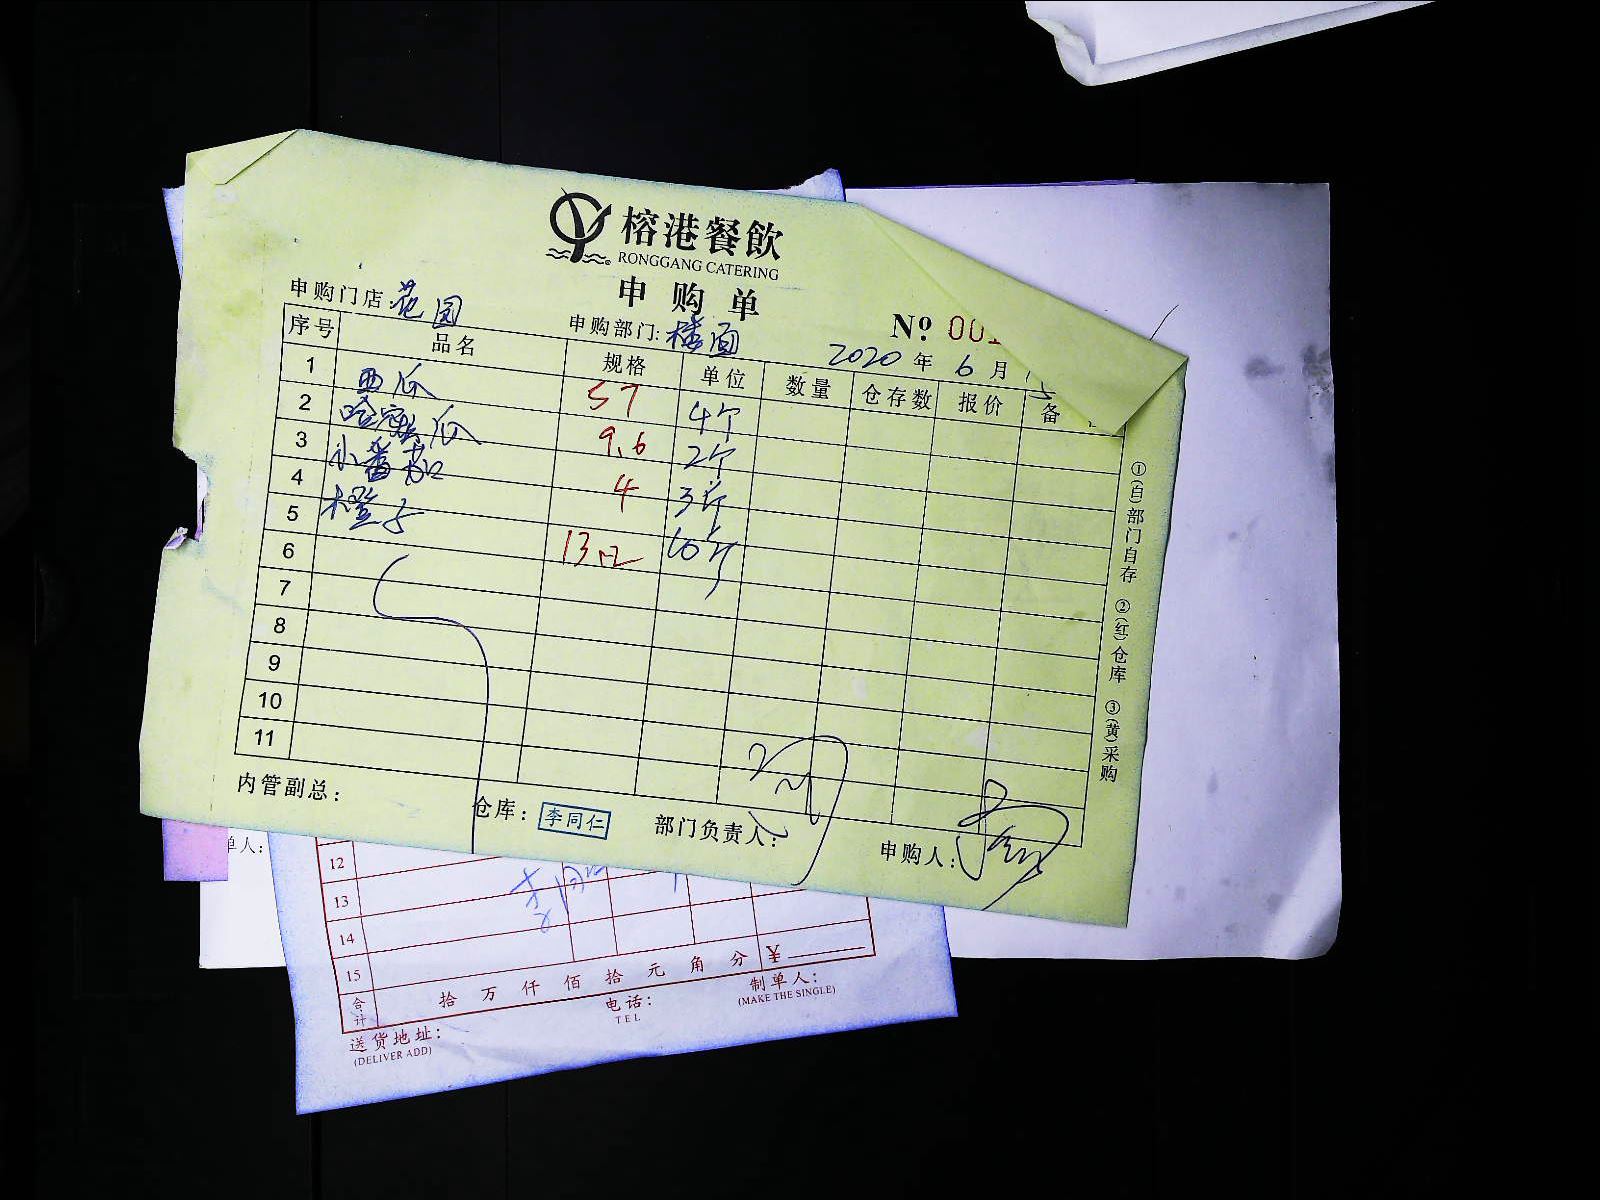 榕港餐飲
RONGGANG CATERING
申购单
申购门店:花园
申购部门:楼面
Nº 00
2020年6月
序号 品名 规格 单位 数量 仓存数 报价 备
1 西瓜 57 4个
2 哈密瓜 9.6 2个
3 小番茄 4 3斤
4 橙子 13 10斤
5
6
7
8
9
10
11
①(白)部门自存 ②(红)仓库 ③(黄)采购
内管副总:
仓库: 李同仁
部门负责人:
申购人:
单人:
12
13
14
15
合计 拾 万 仟 佰 拾 元 角 分 ¥
送货地址:
(DELIVER ADD)
电话:
TEL
制单人:
(MAKE THE SINGLE)